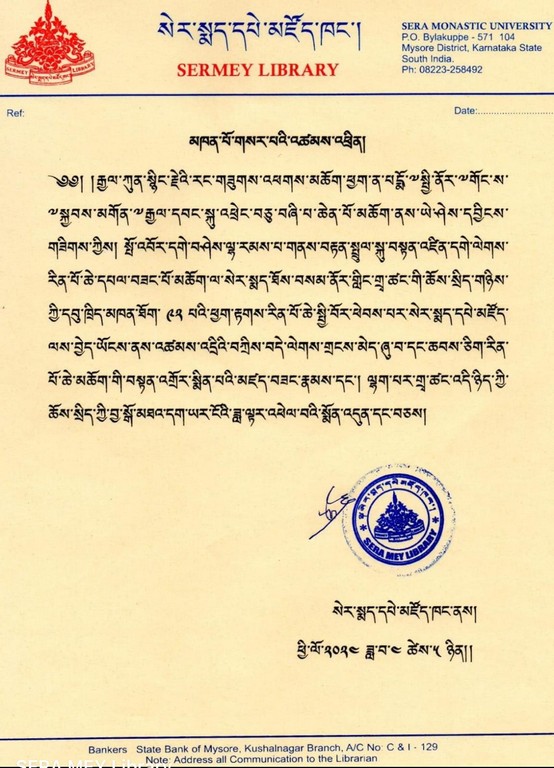 སེར་སྨད་དཔེ་མཛོད་ཁང་།
SERMEY LIBRARY
SERA MONASTIC UNIVERSITY
P.O. Bylakuppe - 571 104
Mysore District, Karnataka State
South India.
Ph: 08223-258492
Ref:
Date:
མཁན་པོ་གསར་བའི་འཚམས་འཕྲིན།
༄༅། །རྒྱལ་ཀུན་སྙིང་རྗེའི་རང་གཟུགས་འཕགས་མཆོག་ཕྱག་ན་པདྨོ་༧སྤྱི་ནོར་༧གོང་ས་
༧སྐྱབས་མགོན་༧རྒྱལ་དབང་སྐུ་འཕྲེང་བཅུ་བཞི་པ་ཆེན་པོ་མཆོག་ནས་ཡེ་ཤེས་དབྱིངས་
གཟིགས་ཀྱིས། སྤོ་འབོར་དགེ་བཤེས་ལྷ་རམས་པ་གནས་བརྟན་སྤྲུལ་སྐུ་བསྟན་འཛིན་དགེ་ལེགས་
རིན་པོ་ཆེ་དཔལ་བཟང་པོ་མཆོག་ལ་སེར་སྨད་ཐོས་བསམ་ནོར་གླིང་གྲྭ་ཚང་གི་ཆོས་སྲིད་གཉིས་
ཀྱི་དབུ་ཁྲིད་མཁན་ཐོག་ ༩༢ པའི་ཕྱག་རྟགས་རིན་པོ་ཆེ་སྤྱི་བོར་ཕེབས་པར་སེར་སྨད་དཔེ་མཛོད་
ལས་བྱེད་ཡོངས་ནས་འཚམས་འདྲིའི་བཀྲིས་བདེ་ལེགས་གྲངས་མེད་ཞུ་བ་དང་ཆབས་ཅིག་རིན་
པོ་ཆེ་མཆོག་གི་བསྟན་འགྲོར་སྨིན་པའི་མཛད་བཟང་རྣམས་དང་། ལྷག་པར་གྲྭ་ཚང་འདི་ཉིད་ཀྱི་
ཆོས་སྲིད་ཀྱི་བྱ་སྒོ་མཐའ་དག་ཡར་ངོའི་ཟླ་ལྟར་འཕེལ་བའི་སྨོན་འདུན་དང་བཅས།
སེར་སྨད་དཔེ་མཛོད་ཁང་།
SERA MEY LIBRARY
སེར་སྨད་དཔེ་མཛོད་ཁང་ནས།
ཕྱི་ལོ་༢༠༢༤ ཟླ་བ་༤ ཚེས་༥ ཉིན།།
Bankers State Bank of Mysore, Kushalnagar Branch, A/C No: C & I - 129
Note: Address all Communication to the Librarian
SERA MEY Library